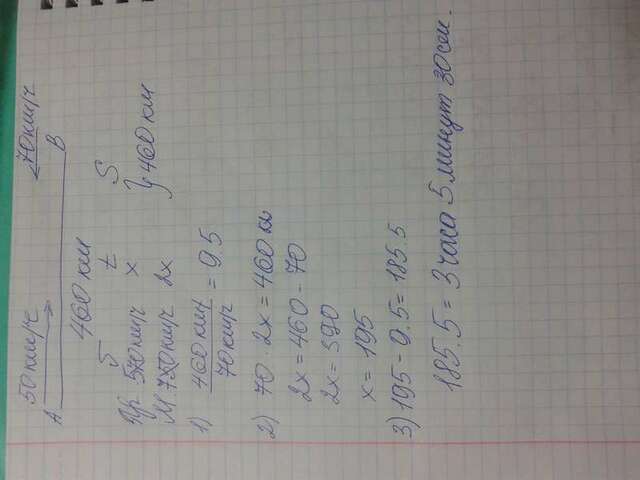 50 км/ч 70 км/ч
A B
460 км
S t S
Гр. 50 км/ч x } 460 км
М 70 км/ч 2x
1) 460 км / 70 км/ч = 9.5
2) 70 · 2x = 460 км
2x = 460 - 70
2x = 390
x = 195
3) 195 - 9.5 = 185.5
185.5 = 3 часа 5 минут 30 сек.